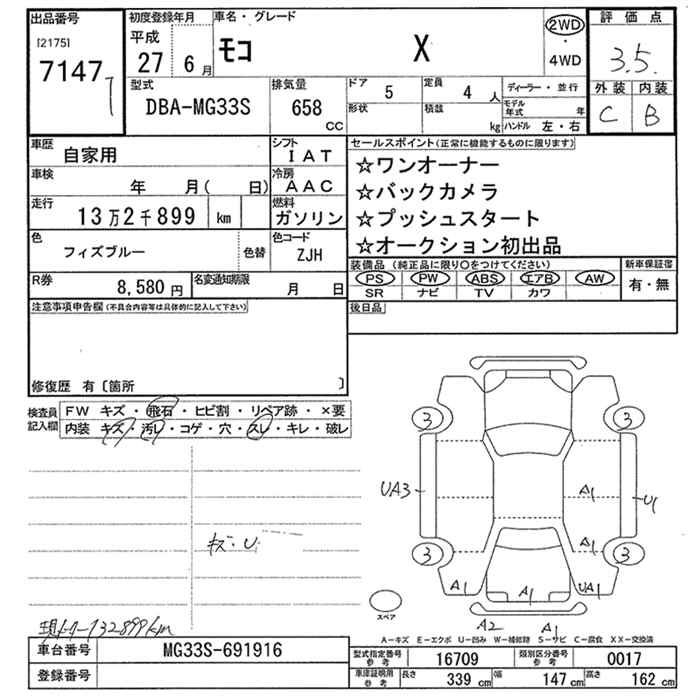 出品番号 初度登録年月 車名・グレード 評価点
[2175] 平成 モコ X 2WD
7147 27 6月 ・ 4WD 3.5
型式 排気量 ドア 5 定員 4人 ディーラー・並行 外装 内装
DBA-MG33S 658 CC 形状 積載 kg モデル年式 年 C B
ハンドル 左・右
車歴 自家用 シフト IAT セールスポイント(正常に機能するものに限ります)
☆ワンオーナー
車検 年 月( 日) 冷房 AAC ☆バックカメラ
走行 13万2千899 km 燃料 ガソリン ☆プッシュスタート
☆オークション初出品
色 フィズブルー 色替 色コード ZJH
装備品(純正品に限り○をつけてください) 新車保証書
PS PW ABS エアB AW 有・無
R券 8,580円 名変通知期限 月 日 SR ナビ TV カワ
注意事項申告欄(不具合内容等は具体的に記入して下さい) 後日品
修復歴 有〔箇所 〕
検査員記入欄 FW キズ・飛石・ヒビ割・リペア跡・×要
内装 キズ・汚レ・コゲ・穴・スレ・キレ・破レ
3 3
UA3 A1 U1
A1
キズ・U
3 3
A1 A1 UA1
スペア
A2 A1
132899km
A-キズ E-エクボ U-凹み W-補修跡 S-サビ C-腐食 XX-交換済
車台番号 MG33S-691916 型式指定番号 参考 16709 類別区分番号 参考 0017
登録番号 車庫証明用 参考 長さ 339 cm 幅 147 cm 高さ 162 cm